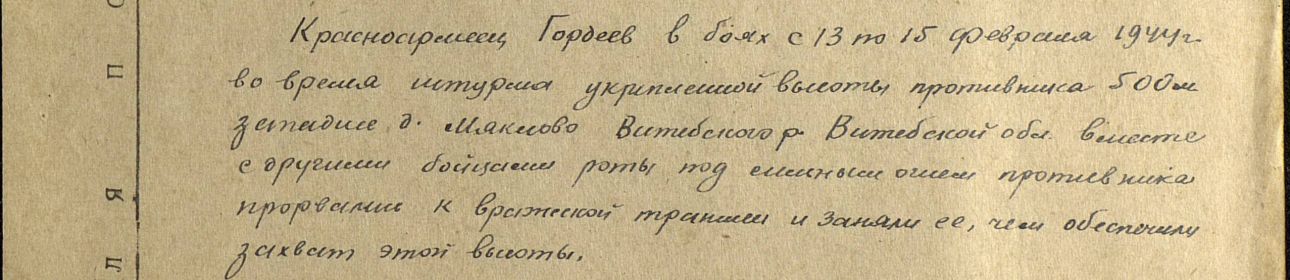 Красноармеец Гордеев в боях с 13 по 15 февраля 1944 г.
во время штурма укрепленной высоты противника 500 м
западнее д. Мяклово Витебского р. Витебской обл. вместе
с другими бойцами роты под сильным огнем противника
прорвались к вражеской траншеи и заняли ее, чем обеспечили
захват этой высоты.
О
П
Я
Л